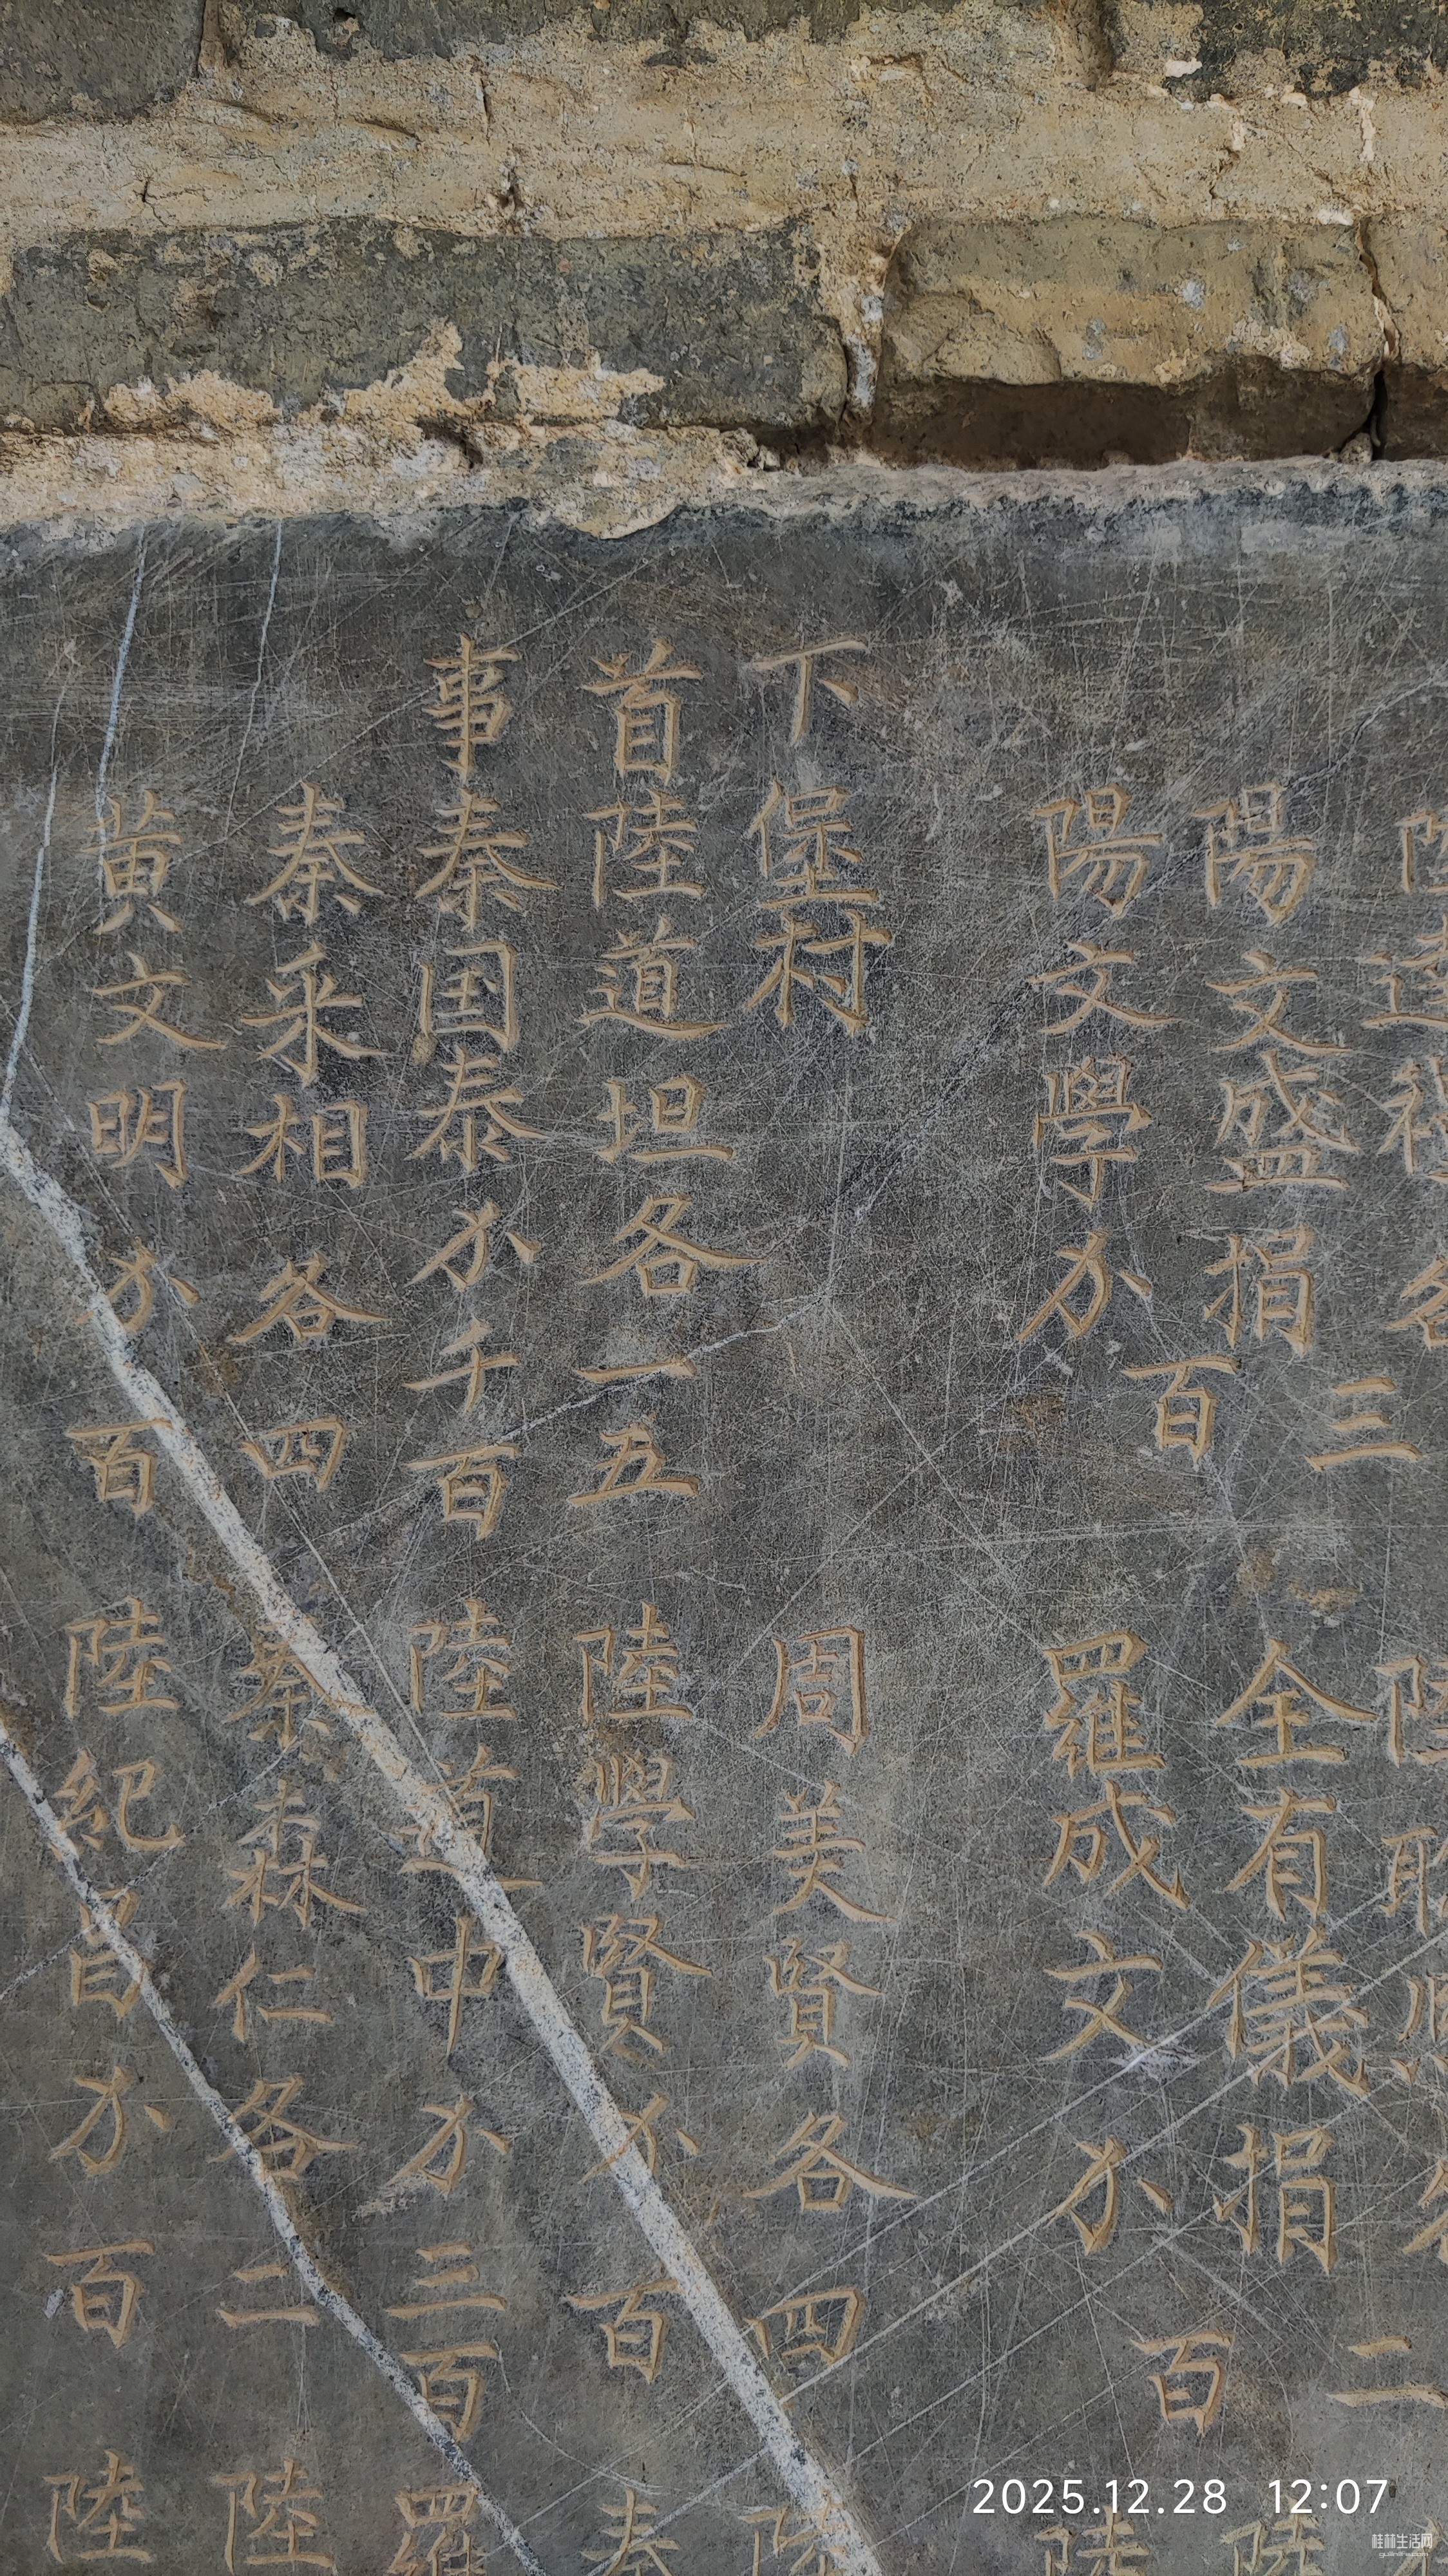 三 二
陽文盛捐 全有儀捐 陸
百 百
陽文學办 羅成文办 陸
下堡村 周美賢各四 陸
首陸道坦各一五 陸學賢办百 秦
事秦国泰办千百 陸道中办三百 羅
秦采相各四 秦森仁各二 陸
黄文明办百 陸紀昌办百 陸
2025.12.28 12:07
桂林生活网
guilinlife.com